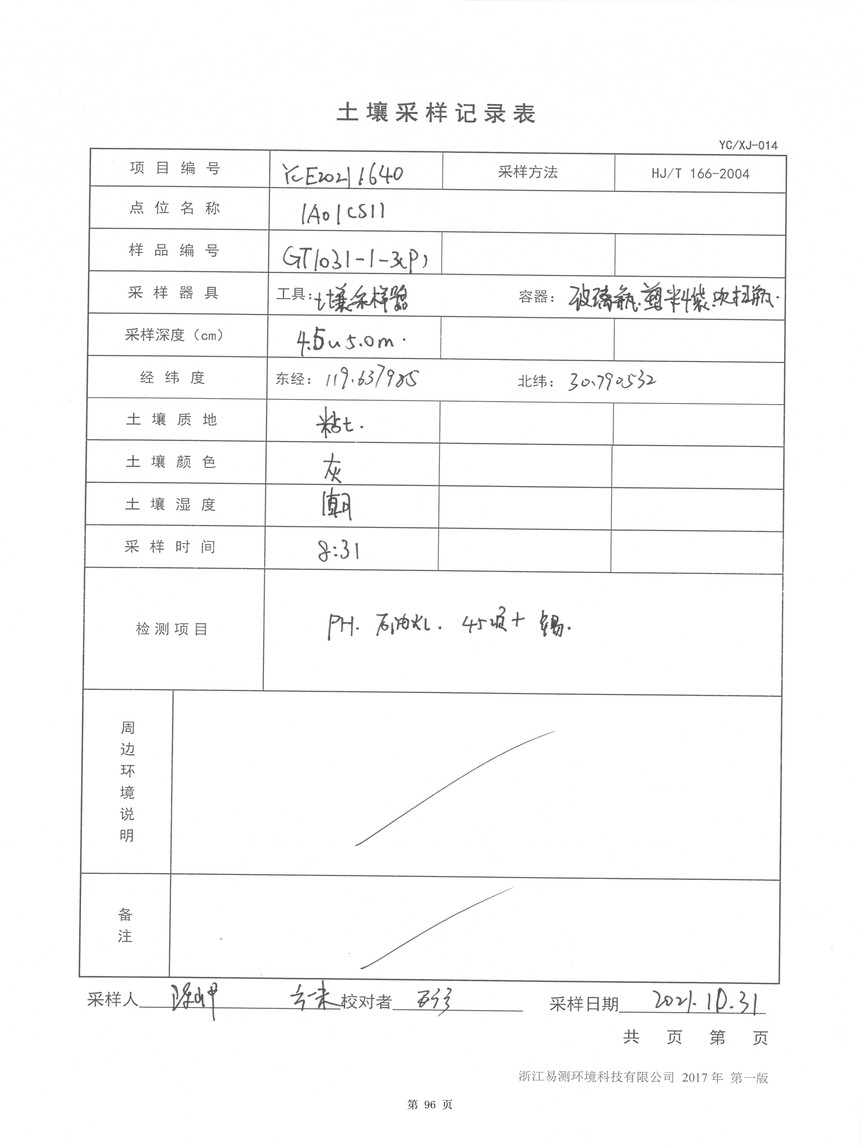 土壤采样记录表
YC/XJ-014
项目编号 YCE20211640 采样方法 HJ/T 166-2004
点位名称 1A01CS11
样品编号 GT1031-1-3(P)
采样器具 工具:土壤采样器 容器:玻璃瓶.塑料袋.吹扫瓶.
采样深度(cm) 4.5~5.0m.
经纬度 东经:119.637985 北纬:30.790532
土壤质地 粘土.
土壤颜色 灰
土壤湿度 潮
采样时间 8:31
检测项目 PH. 石油烃. 45项+锡.
周边环境说明
备注
采样人 校对者 采样日期 2021.10.31
共 页 第 页
浙江易测环境科技有限公司 2017年 第一版
第 96 页